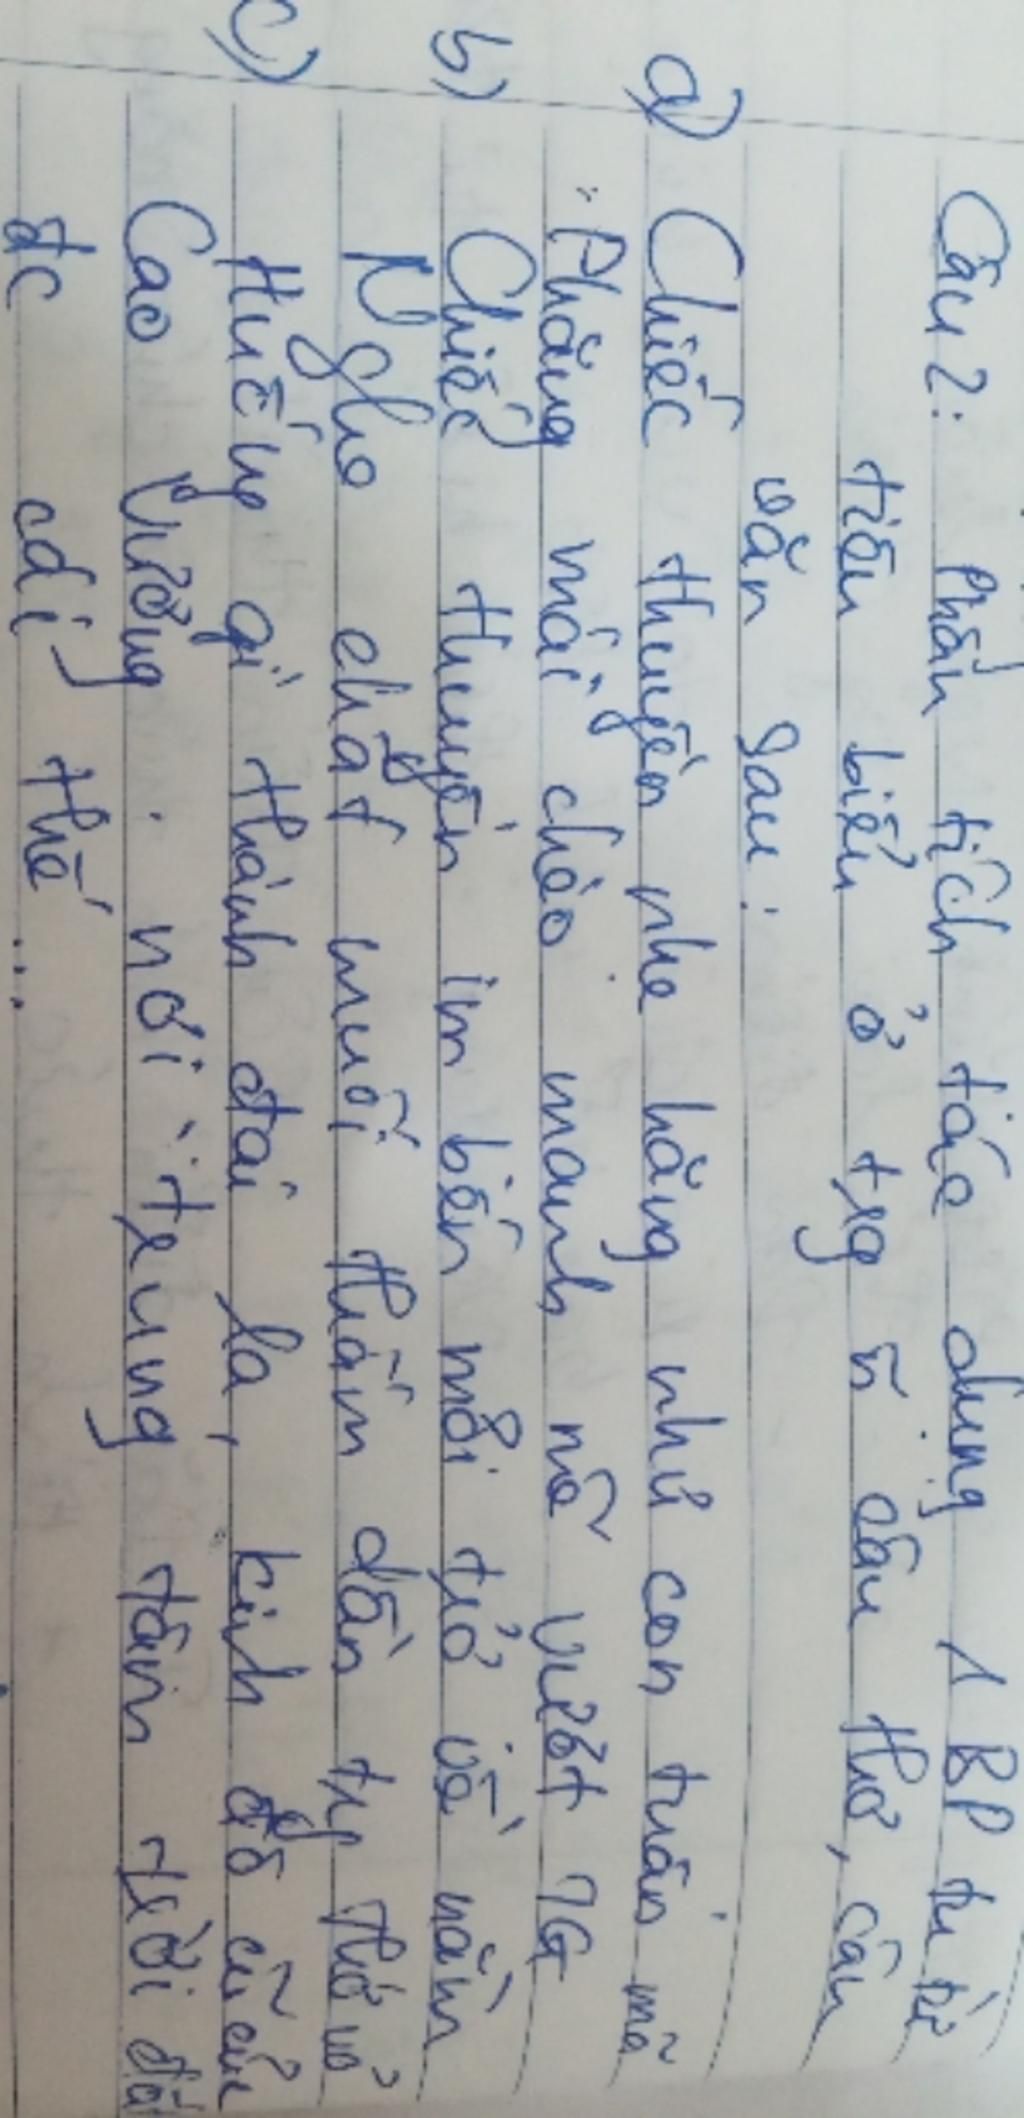 Câu 2: Phân tích tác dụng 1 BP tu từ
tiêu biểu ở trg ~ câu thơ, câu
văn sau:
a) Chiếc thuyền nhẹ hăng như con tuấn mã
Phăng mái chèo mạnh mẽ vượt TG
b) Chiếc thuyền im bến mỏi trở về nằm
Nghe chất muối thấm dần trg thớ vỏ
c) Huống gì thành đại la, kinh đô cũ của
Cao Vương: nơi trung tâm trời đất
đc cái thế ...